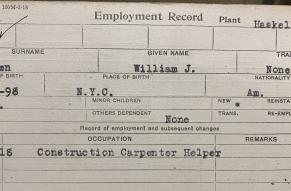 100M-2-18
Employment Record Plant Haskel
SURNAME GIVEN NAME TRA
en William J. None
OF BIRTH PLACE OF BIRTH NATIONALITY
-98 N.Y.C. Am.
MINOR CHILDREN NEW * REINSTA
OTHERS DEPENDENT None TRANS. RE-EMPL
Record of employment and subsequent changes
OCCUPATION REMARKS
18 Construction Carpenter Helper